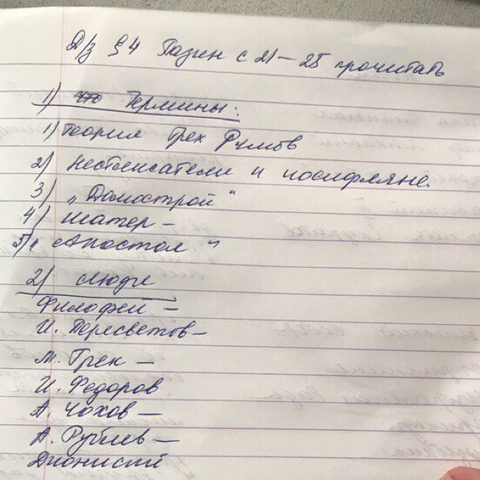 Д/з § 4 Пазин с 21-25 прочитать
1) Термины:
1) теория Трех Римов
2) нестяжатели и иосифляне.
3) „Домострой"
4) шатер -
5) „Апостол"
2) люди
Филофей -
И. Пересветов -
М. Грек -
И. Федоров
А. Чохов -
А. Рублев -
Дионисий